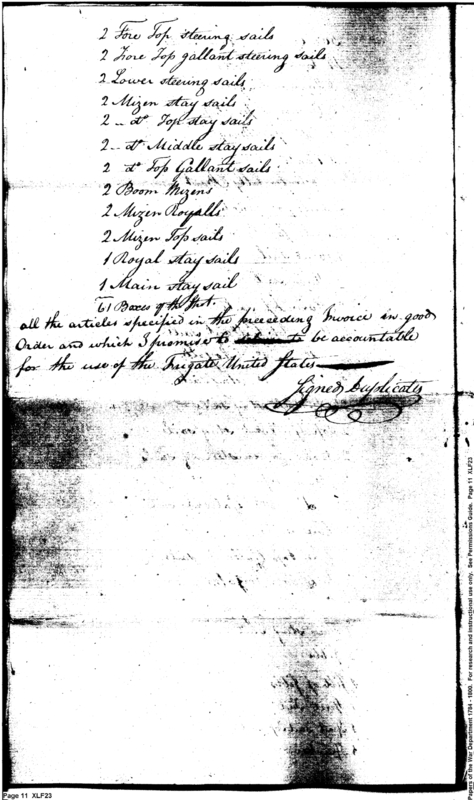 2 Fore Top steering sails
2 Fore Top gallant steering sails
2 Lower steering sails
2 Mizen stay sails
2 -- do Top stay sails
2 -- do Middle stay sails
2 do Top Gallant sails
2 Boom Mizens
2 Mizen Royalls
2 Mizen Top sails
1 Royal stay sails
1 Main stay sail
61 Boxes of
all the articles specified in the preceeding Invoice in good
Order and which I promise to to be accountable
for the use of the Frigate United States
Signed Duplicates
Page 11 XLF23
Papers of the War Department 1784 - 1800. For research and instructional use only. See Permissions Guide. Page 11 XLF23